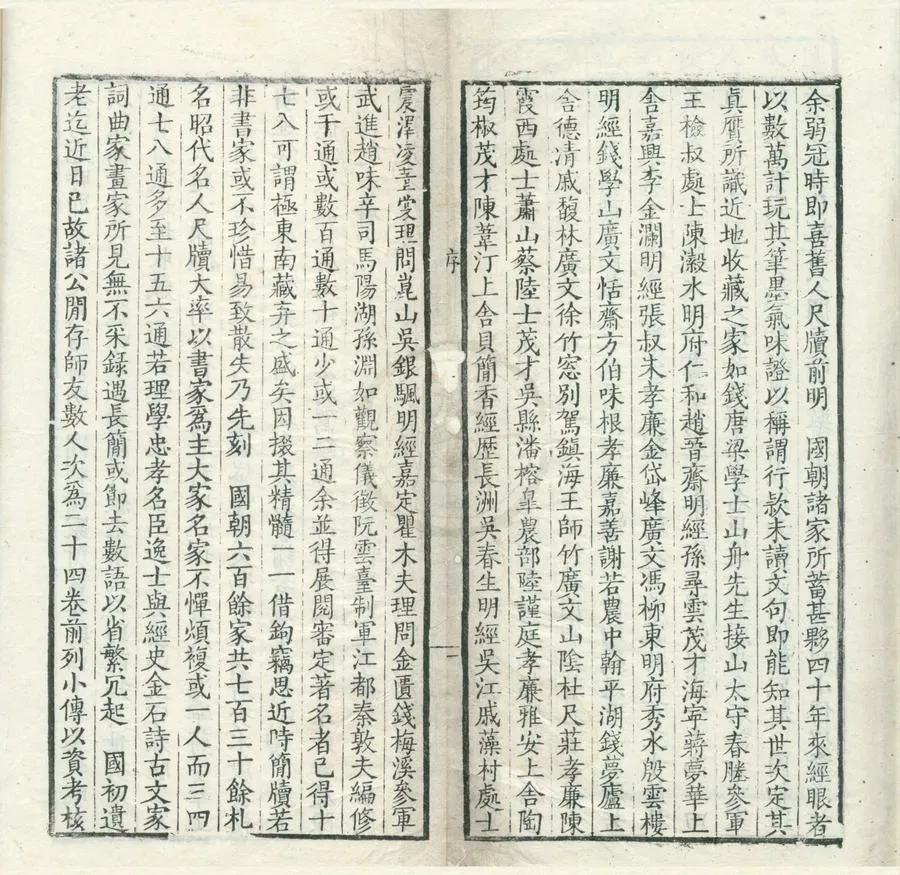 余弱冠時即喜舊人尺牘前明　國朝諸家所蓄甚夥四十年來經眼者
以數萬計玩其筆墨氣味證以稱謂行款未讀文句即能知其世次定其
眞贋所識近地收藏之家如錢唐梁學士山舟先生接山太守春塍參軍
王檢叔處士陳瀔水明府仁和趙晉齋明經孫尋雲茂才海寧蔣夢華上
舍嘉興李金瀾明經張叔未孝廉金岱峰廣文馮柳東明府秀水殷雲樓
明經錢學山廣文恬齋方伯味根孝廉嘉善謝若農中翰平湖錢夢廬上
舍德清戚馥林廣文徐竹窓別駕鎭海王師竹廣文山陰杜尺莊孝廉陳
霞西處士蕭山蔡陸士茂才吳縣潘榕皐農部陸謹庭孝廉雅安上舍陶
筠椒茂才陳葦汀上舍貝簡香經歷長洲吳春生明經吳江戚藻村處士
序
一
震澤凌薑裳理問崑山吳銀颿明經嘉定瞿木夫理問金匱錢梅溪參軍
武進趙味辛司馬陽湖孫淵如觀察儀徵阮雲臺制軍江都秦敦夫編修
或千通或數百通數十通少或一二通余並得展閱審定著名者已得十
七八可謂極東南藏弆之盛矣因掇其精髓一一借鉤竊思近時簡牘若
非書家或不珍惜易致散失乃先刻　國朝六百餘家共七百三十餘札
名昭代名人尺牘大率以書家爲主大家名家不憚煩複或一人而三四
通七八通多至十五六通若理學忠孝名臣逸士與經史金石詩古文家
詞曲家畫家所見無不采錄遇長簡或節去數語以省繁冗起　國初遺
老迄近日已故諸公閒存師友數人次爲二十四卷前列小傳以資考核